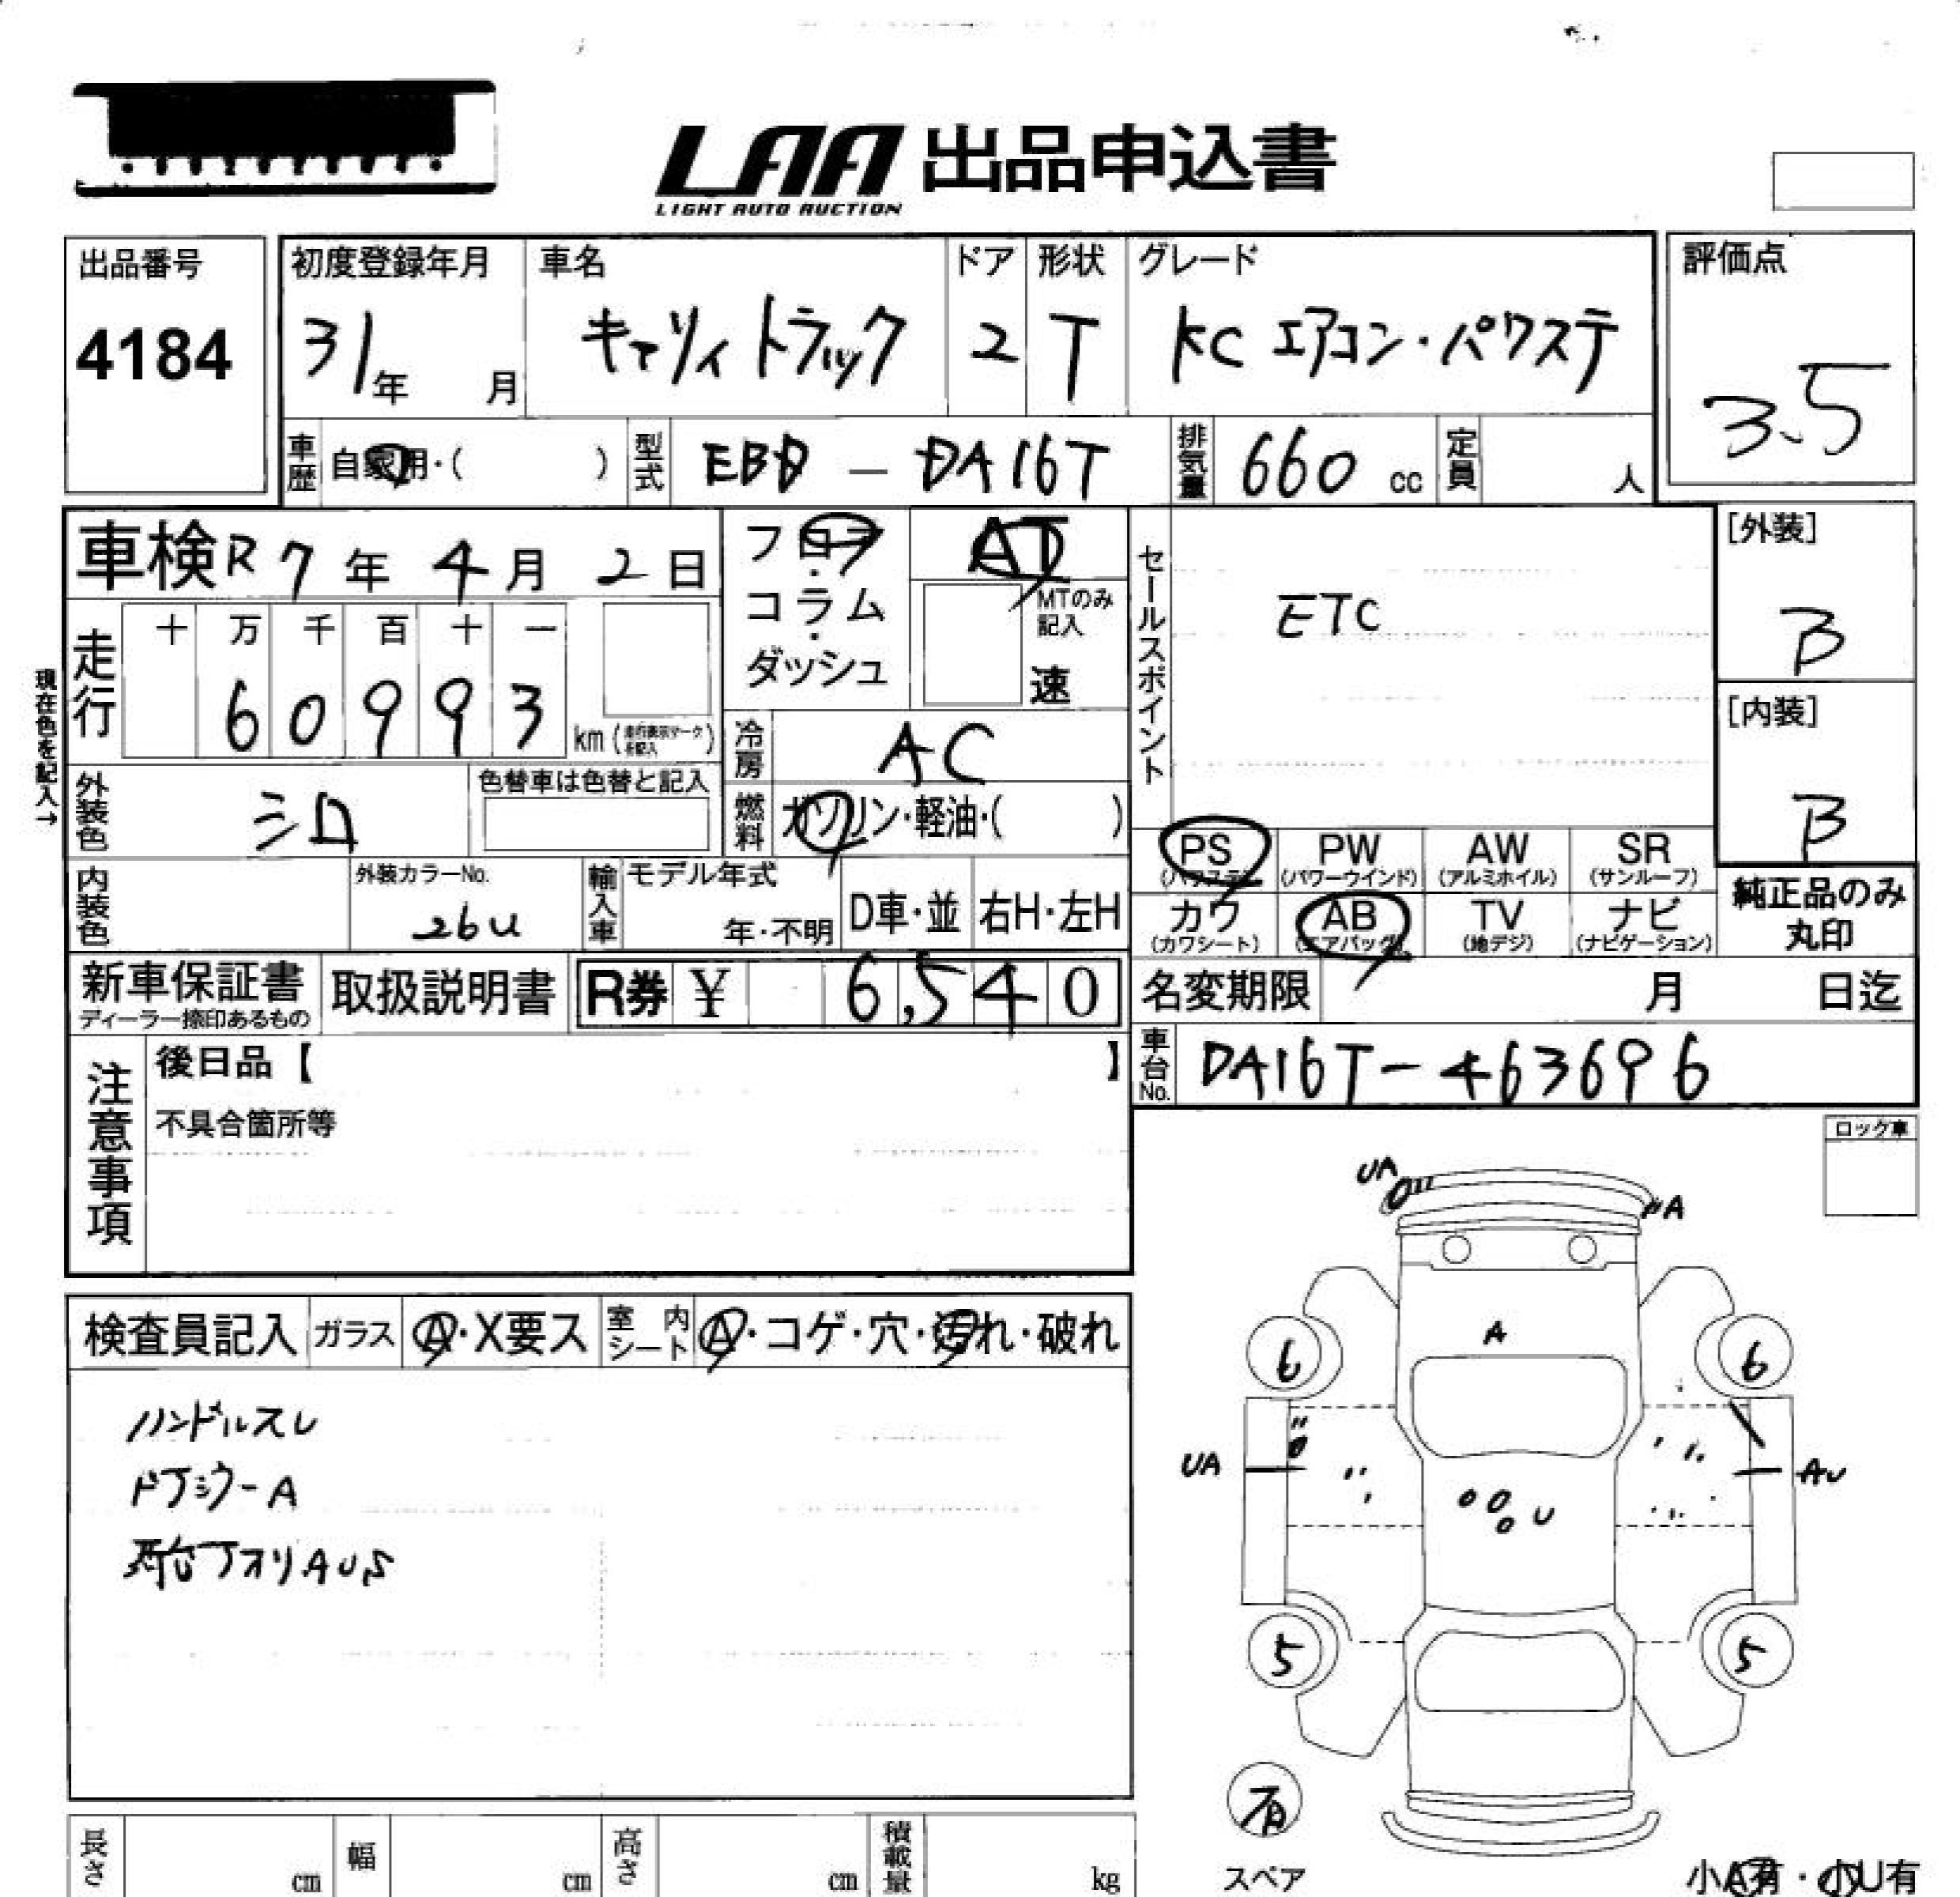 LAA 出品申込書
LIGHT AUTO AUCTION
出品番号
4184
初度登録年月
31年 月
車名
キャリィトラック
ドア
2
形状
T
グレード
KC エアコン・パワステ
評価点
3.5
車歴 自家用・( )
型式 EBD - DA16T
排気量 660 cc
定員 人
車検 R7年 4月 2日
フロア・コラム・ダッシュ
AT
MTのみ記入
速
セールスポイント
ETC
[外装]
B
[内装]
B
現在色を記入→
走行
十 万 千 百 十 一
6 0 9 9 3 km (走行表示マークを記入)
冷房 AC
外装色 シロ
色替車は色替と記入
燃料 ガソリン・軽油・( )
PS (パワステ)
PW (パワーウインド)
AW (アルミホイル)
SR (サンルーフ)
カワ (カワシート)
AB (エアバッグ)
TV (地デジ)
ナビ (ナビゲーション)
純正品のみ
丸印
内装色
外装カラーNo.
26U
輸入車
モデル年式
年・不明
D車・並
右H・左H
新車保証書
ディーラー捺印あるもの
取扱説明書
R券 ¥ 6,540
名変期限 月 日迄
車台No. DA16T-463696
注意事項
後日品【 】
不具合箇所等
ロック車
検査員記入
ガラス A・X要ス
室内シート A・コゲ・穴・汚れ・破れ
ハンドルスレ
ドアシラーA
荷台アオリAUS
UA
A
A
6
6
UA
AU
U
5
5
有
スペア
小A有・小U有
長さ cm
幅 cm
高さ cm
積載量 kg